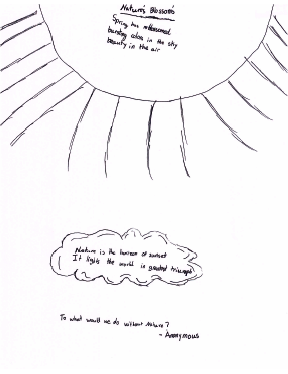 Nature's Blossoms
Spring has
burning colors in the sky
beauty in the air
Nature is the horizon of sunset
It lights the world in greatest triumph
To what would we do without Nature?
- Anonymous